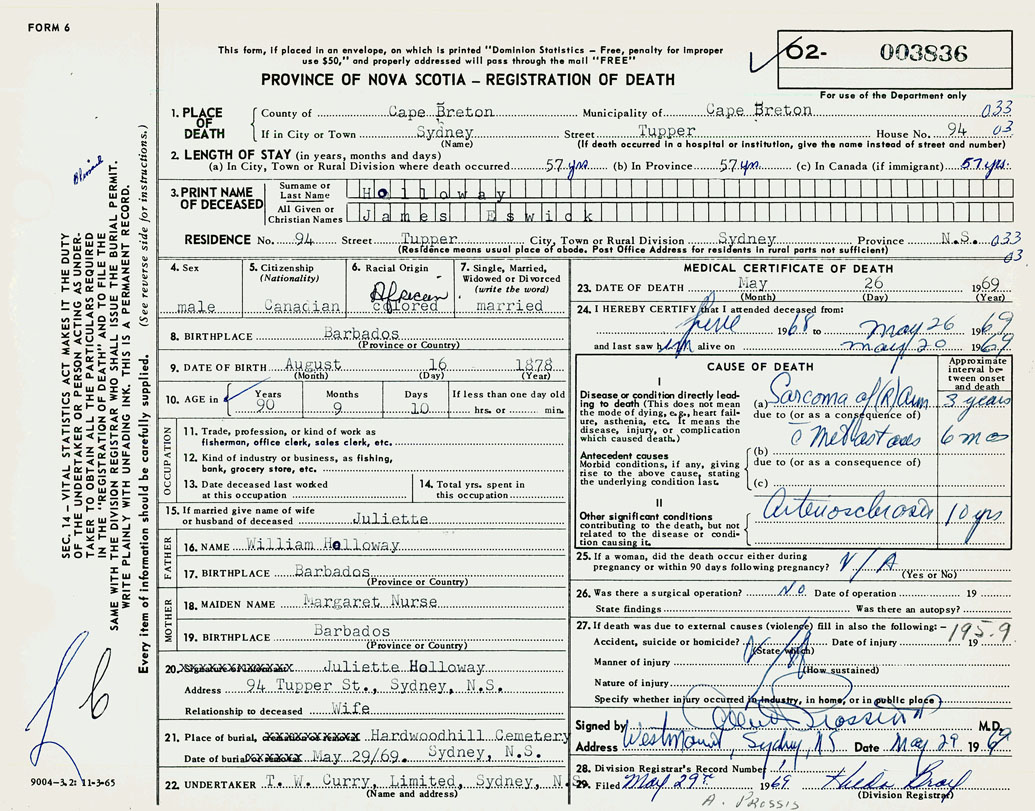 FORM 6
This form, if placed in an envelope, on which is printed "Dominion Statistics – Free, penalty for improper
use $50," and properly addressed will pass through the mail "FREE"
PROVINCE OF NOVA SCOTIA – REGISTRATION OF DEATH
02- 003836
For use of the Department only
1. PLACE OF DEATH
County of Cape Breton Municipality of Cape Breton 033
If in City or Town Sydney Street Tupper House No. 94 03
(Name) (If death occurred in a hospital or institution, give the name instead of street and number)
2. LENGTH OF STAY (in years, months and days)
(a) In City, Town or Rural Division where death occurred 57 yrs. (b) In Province 57 yrs. (c) In Canada (if immigrant) 57 yrs.
3. PRINT NAME OF DECEASED
Surname or Last Name Holloway
All Given or Christian Names James Eswick
RESIDENCE No. 94 Street Tupper City, Town or Rural Division Sydney Province N.S. 033
(Residence means usual place of abode. Post Office Address for residents in rural parts not sufficient) 03
4. Sex
male
5. Citizenship
(Nationality)
Canadian
6. Racial Origin
African
colored
7. Single, Married,
Widowed or Divorced
(write the word)
married
8. BIRTHPLACE Barbados
(Province or Country)
9. DATE OF BIRTH August 16 1878
(Month) (Day) (Year)
10. AGE in Years Months Days If less than one day old
90 9 10 hrs. or min.
OCCUPATION
11. Trade, profession, or kind of work as
fisherman, office clerk, sales clerk, etc.
12. Kind of industry or business, as fishing,
bank, grocery store, etc.
13. Date deceased last worked
at this occupation
14. Total yrs. spent in
this occupation
15. If married give name of wife
or husband of deceased Juliette
FATHER
16. NAME William Holloway
17. BIRTHPLACE Barbados
(Province or Country)
MOTHER
18. MAIDEN NAME Margaret Nurse
19. BIRTHPLACE Barbados
(Province or Country)
20. Juliette Holloway
Address 94 Tupper St., Sydney, N.S.
Relationship to deceased Wife
21. Place of burial, Hardwoodhill Cemetery
Date of burial May 29/69. Sydney, N.S.
22. UNDERTAKER T. W. Curry, Limited, Sydney, N.S.
(Name and address)
MEDICAL CERTIFICATE OF DEATH
23. DATE OF DEATH May 26 1969
(Month) (Day) (Year)
24. I HEREBY CERTIFY that I attended deceased from:
June 1968 to May 26 1969
and last saw him alive on May 20 1969
CAUSE OF DEATH
Approximate
interval be-
tween onset
and death
I
Disease or condition directly lead-
ing to death (This does not mean
the mode of dying, e.g., heart fail-
ure, asthenia, etc. It means the
disease, injury, or complication
which caused death.)
(a) Sarcoma of (R) Arm 3 years
due to (or as a consequence of)
c̄ Metastases 6 mos
Antecedent causes
Morbid conditions, if any, giving
rise to the above cause, stating
the underlying condition last.
(b)
due to (or as a consequence of)
(c)
II
Other significant conditions
contributing to the death, but not
related to the disease or condi-
tion causing it.
Arteriosclerosis 10 yrs
25. If a woman, did the death occur either during
pregnancy or within 90 days following pregnancy? N/A
(Yes or No)
26. Was there a surgical operation? No. Date of operation 19
State findings Was there an autopsy?
27. If death was due to external causes (violence) fill in also the following: – 195.9
Accident, suicide or homicide? N/A Date of injury 19
(State which)
Manner of injury
(How sustained)
Nature of injury
Specify whether injury occurred in industry, in home, or in public place
Signed by M.D.
Address Westmount, Sydney, NS Date May 29 1969
28. Division Registrar's Record Number
29. Filed May 29th 1969
(Division Registrar)
A. PROSSIS
SEC. 14 – VITAL STATISTICS ACT MAKES IT THE DUTY
OF THE UNDERTAKER OR PERSON ACTING AS UNDER-
TAKER TO OBTAIN ALL THE PARTICULARS REQUIRED
IN THE "REGISTRATION OF DEATH" AND TO FILE THE
SAME WITH THE DIVISION REGISTRAR WHO SHALL ISSUE THE BURIAL PERMIT.
WRITE PLAINLY WITH UNFADING INK. THIS IS A PERMANENT RECORD.
Every item of information should be carefully supplied. (See reverse side for instructions.)
9004–3.2: 11-3-65